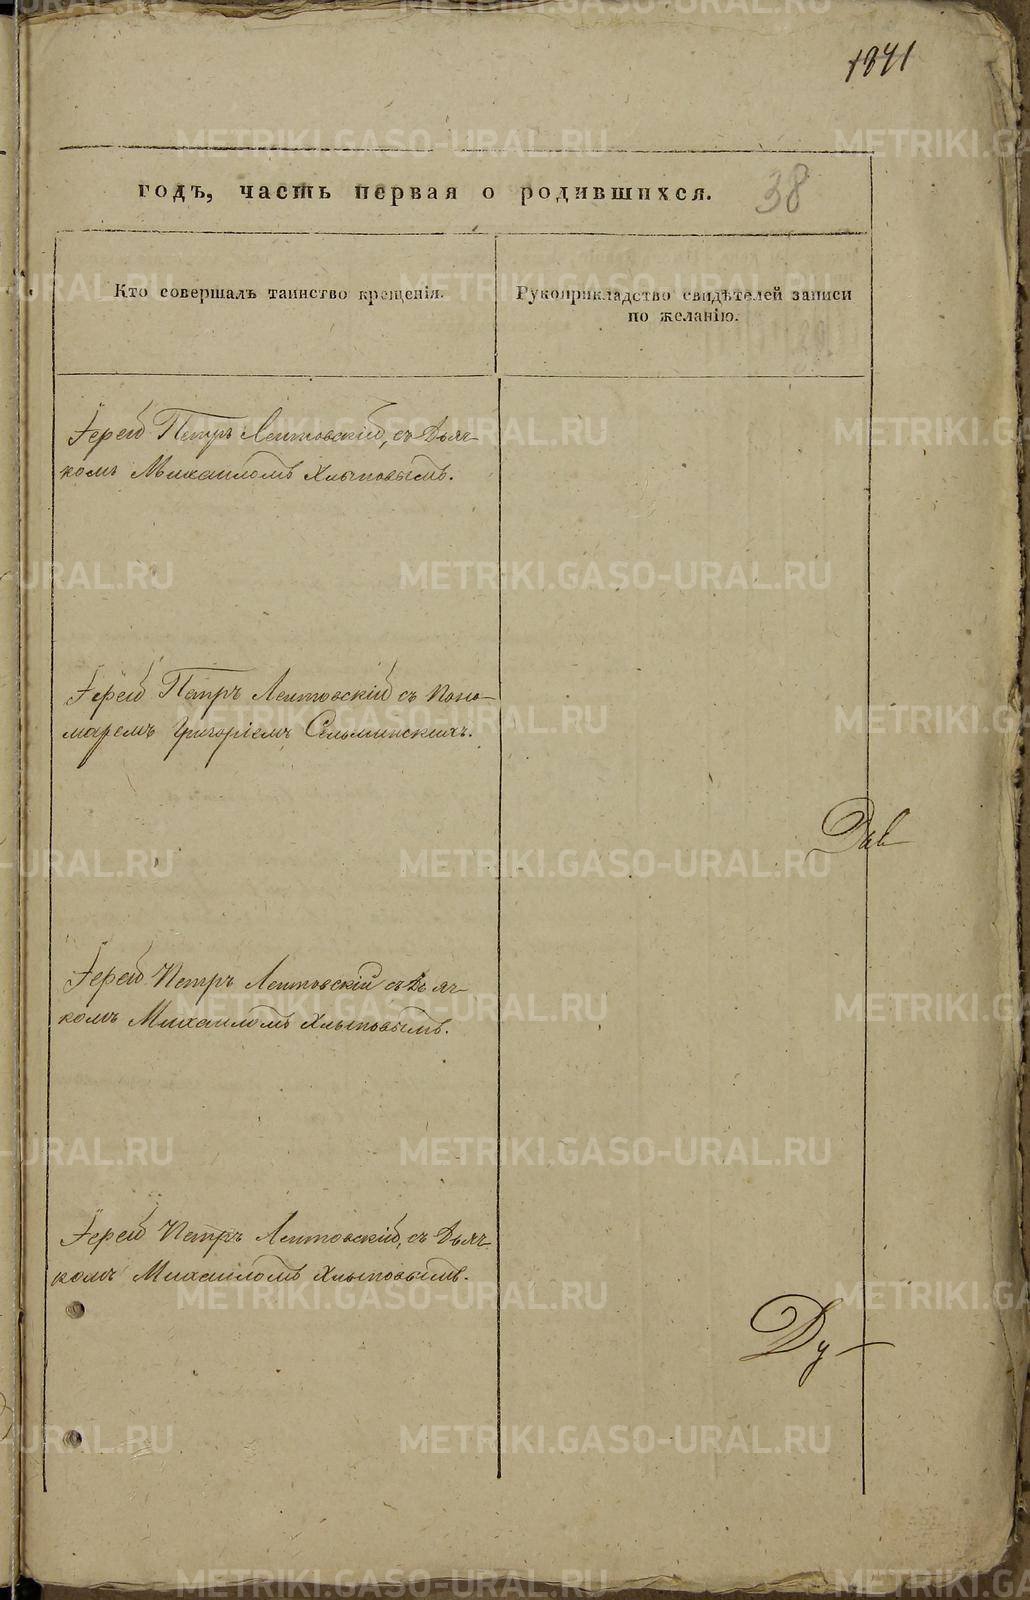 1841
годъ, часть первая о родившихся. 38
Кто совершалъ таинство крещенія.
Рукоприкладство свидѣтелей записи
по желанію.
Іерей Петръ Лентовскій, съ Дьяч-
комъ Михаиломъ Хлыновымъ.
Іерей Петръ Лентовскій съ Поно-
маремъ Григоріемъ
Дав
Іерей Петръ Лентовскій съ Дьяч-
комъ Михаиломъ Хлыновымъ.
Іерей Петръ Лентовскій, съ Дьяч-
комъ Михаиломъ Хлыновымъ.
Ду
METRIKI.GASO-URAL.RU